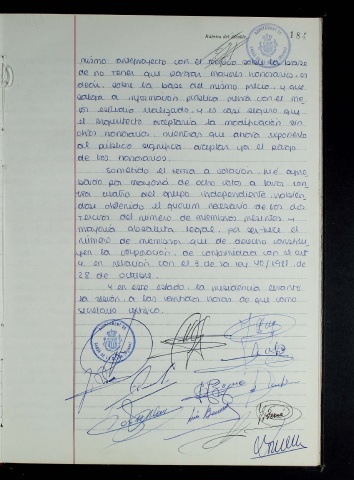 Rúbrica del Alcalde,
mismo anteproyecto con el mismo sobre la base
de no tener que pagar mayores honorarios, es
decir, sobre la base del mismo precio, y que
salga a información pública pero con el me
jor estudio realizado, y es casi seguro que
el Arquitecto aceptaría la modificación sin
otros honorarios, mientras que ahora exponerlo
al público significa aceptar ya el pago
de los honorarios.
Sometido el tema a votación, fue apro
bado por mayoría de ocho votos a favor con
tra cuatro del grupo independiente, habién
dose obtenido el quorum necesario de los dos
tercios del número de miembros presentes y
mayoría absoluta legal, por ser trece el
número de miembros que de derecho constitu
yen la corporación, de conformidad con el art
4, en relación con el 3 de la ley 40/1981, de
28 de octubre.
Y en este estado, la presidencia levanta
la sesión a las veintidós horas de que como
secretario certifico.